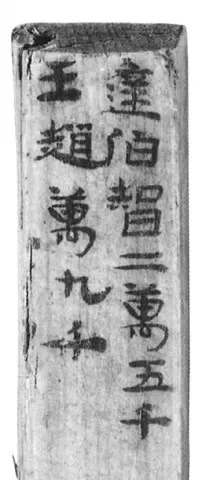 達伯㫪二萬五千
王趙萬九千